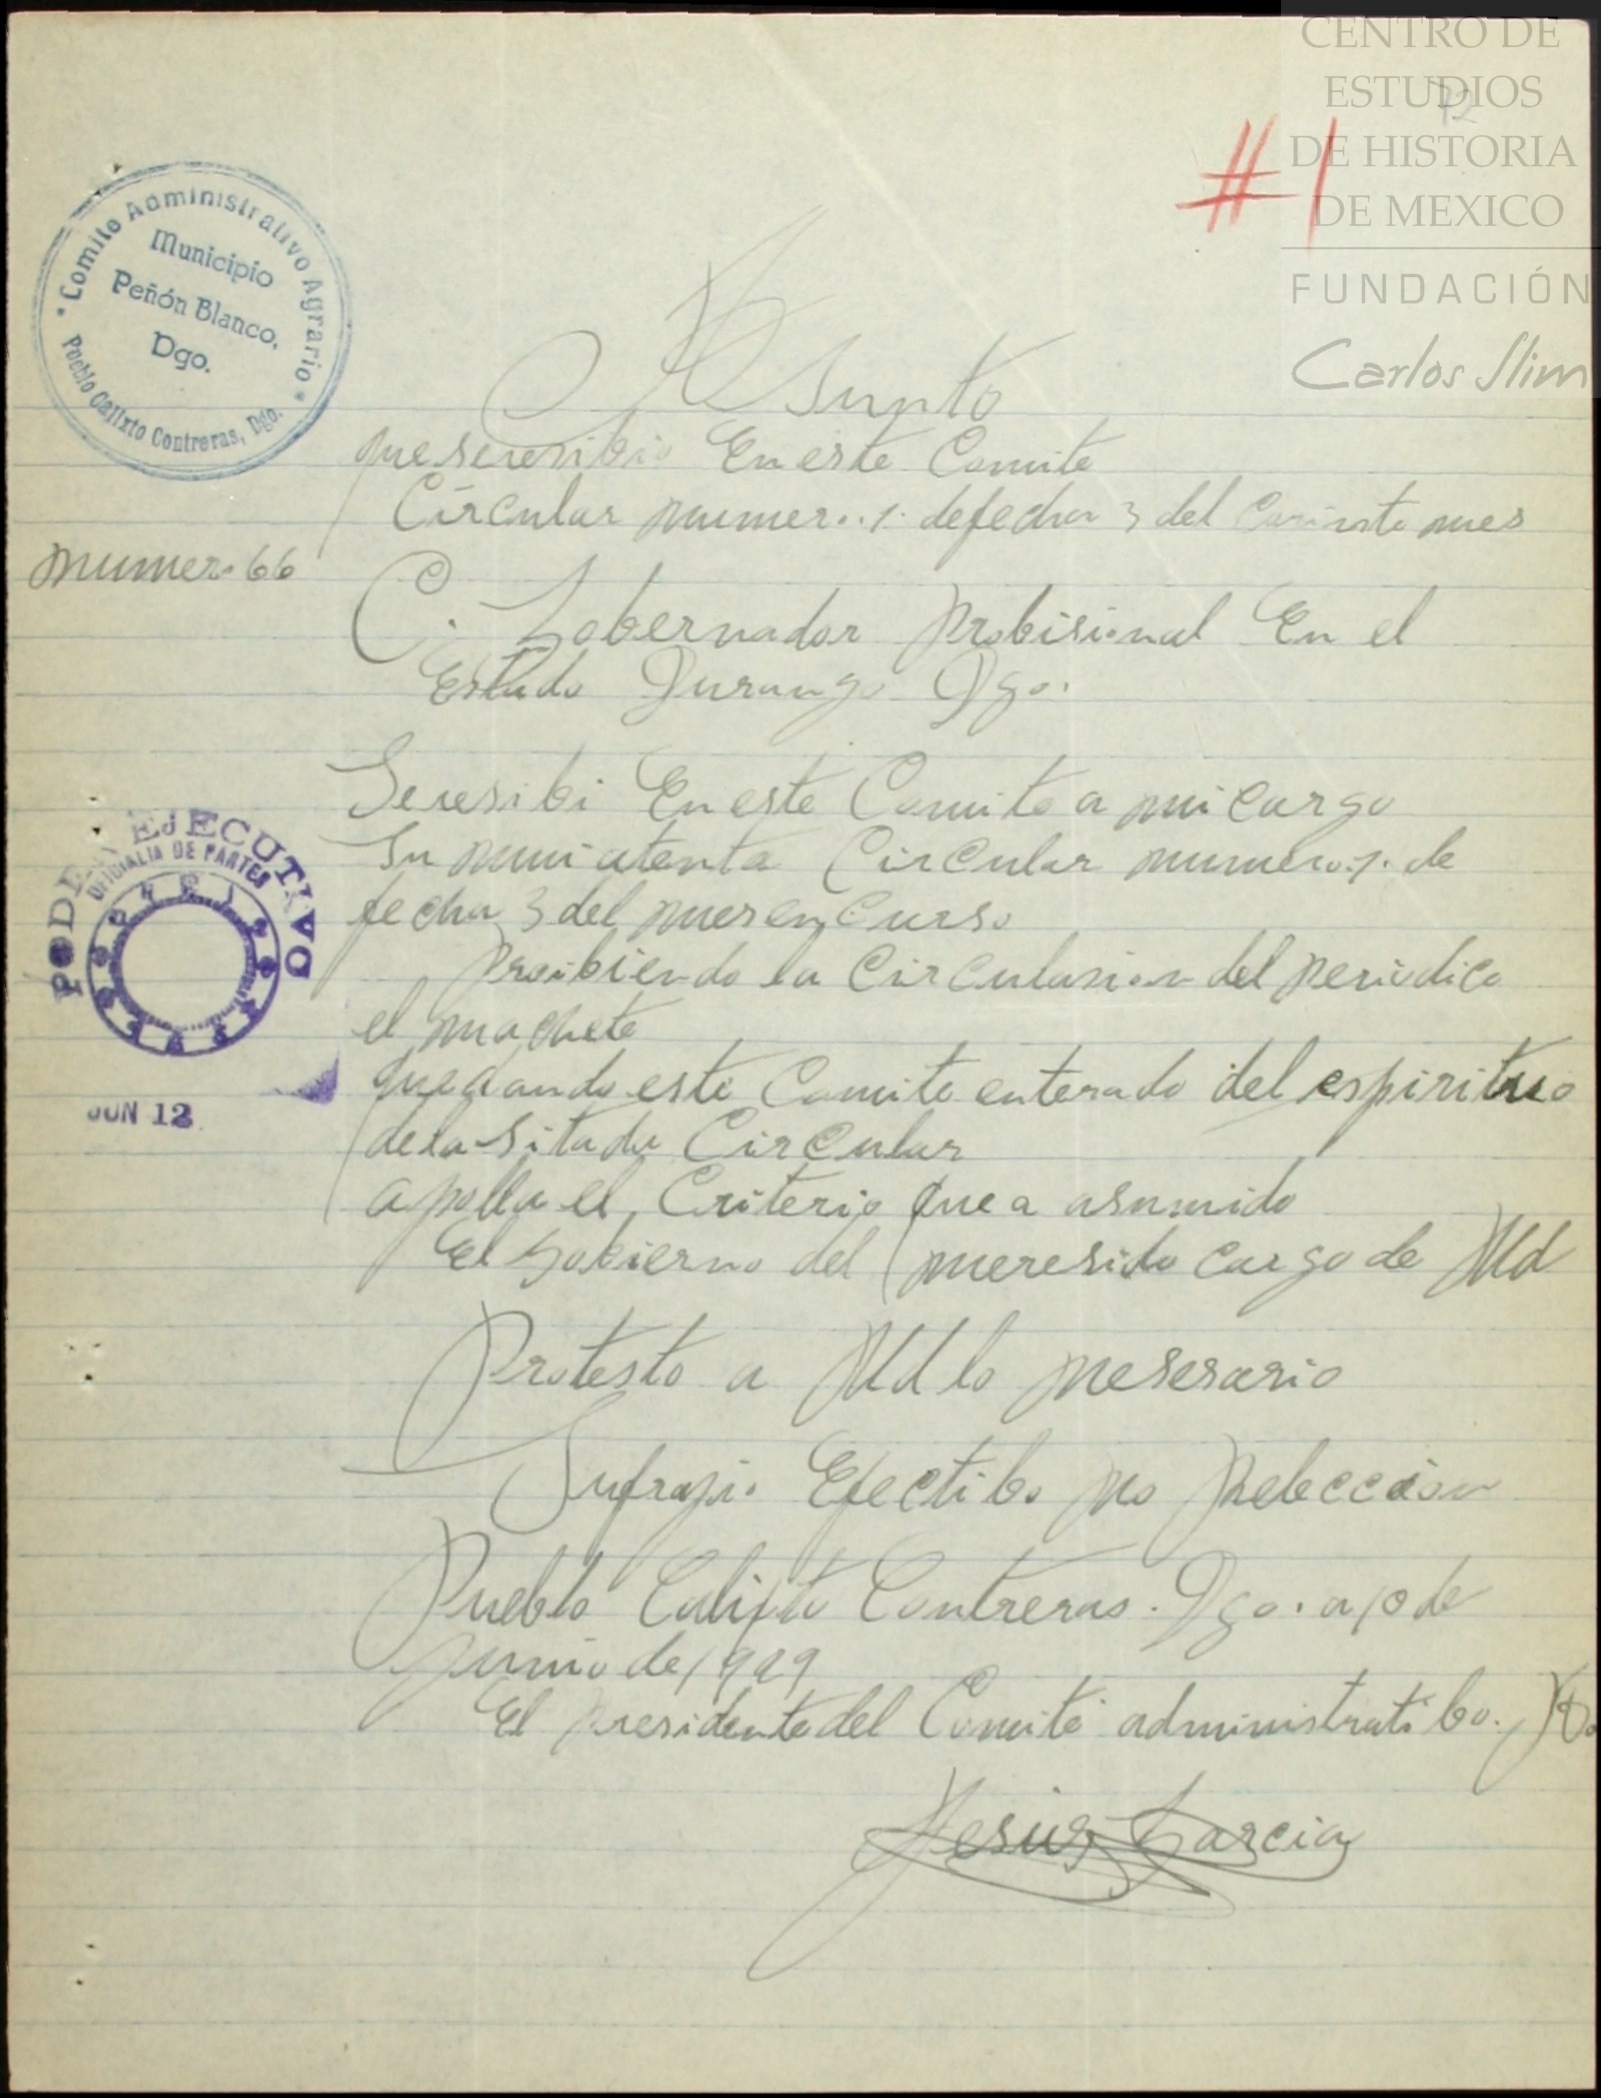 CENTRO DE
ESTUDIOS
DE HISTORIA
DE MEXICO
FUNDACIÓN
Carlos Slim
#1
Comite Administrativo Agrario
Municipio
Peñón Blanco,
Dgo.
Pueblo Calixto Contreras, Dgo.
Asunto
que seresibio En este Comite
Circular numero .1. defecha 3 del Coriente mes
numero 66
C. Gobernador Probisional En el
Estado Durango Dgo.
Seresibi En este Comite a mi Cargo
Su mui atenta Circular numero .1. de
fecha 3 del mes en Curso
Proibiendo la Circulasion del periodico
el machete
quedando este Comite enterado del espirituo
dela sitada Circular
apolla el Criterio que a asumido
El Gobierno del meresido Cargo de Ud
Protesto a Ud lo nesesario
Sufragio Efectibo no Relección
Pueblo Calixto Contreras. Dgo. a 10 de
junio de 1929
El presidente del Comite administratibo.
Jesus Garcia
PODER EJECUTIVO
OFICIALIA DE PARTES
JUN 12